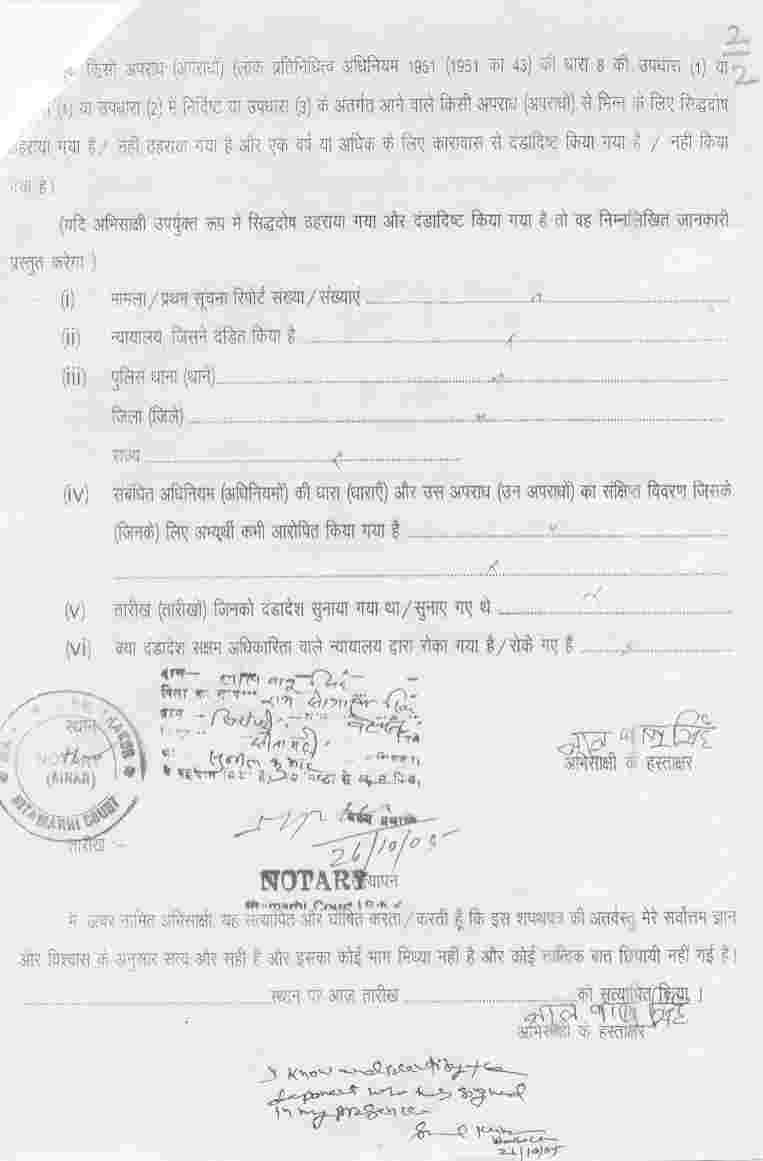 2
2
किसी अपराध (अपराधों) (लोक प्रतिनिधित्व अधिनियम 1951 (1951 का 43) की धारा 8 की उपधारा (1) या
(1) या उपधारा (2) में निर्दिष्ट या उपधारा (3) के अंतर्गत आने वाले किसी अपराध (अपराधों) से भिन्न के लिए सिद्धदोष
ठहराया गया है / नहीं ठहराया गया है और एक वर्ष या अधिक के लिए कारावास से दंडादिष्ट किया गया है / नहीं किया
गया है।
(यदि अभिसाक्षी उपर्युक्त रूप में सिद्धदोष ठहराया गया और दंडादिष्ट किया गया है तो वह निम्नलिखित जानकारी
प्रस्तुत करेगा )
(i) मामला / प्रथम सूचना रिपोर्ट संख्या / संख्याएं
(ii) न्यायालय जिसने दंडित किया है
(iii) पुलिस थाना (थाने)
जिला (जिले)
राज्य
(iv) संबंधित अधिनियम (अधिनियमों) की धारा (धाराएँ) और उस अपराध (उन अपराधों) का संक्षिप्त विवरण जिसके
(जिनके) लिए अभ्यर्थी कभी आरोपित किया गया है
(v) तारीख (तारीखों) जिनको दंडादेश सुनाया गया था / सुनाए गए थे
(vi) क्या दंडादेश सक्षम अधिकारिता वाले न्यायालय द्वारा रोका गया है / रोके गए हैं
नाम
पिता का नाम
सीतामढ़ी
सुनील कुमार
स्थान
THAKUR
NOTARY
(BIHAR)
SITAMARHI COURT
अभिसाक्षी के हस्ताक्षर
तारीख :-
26/10/05
NOTARY
Sitamarhi Court
सत्यापन
मैं ऊपर नामित अभिसाक्षी यह सत्यापित और घोषित करता / करती हूँ कि इस शपथपत्र की अंतर्वस्तु मेरे सर्वोत्तम ज्ञान
और विश्वास के अनुसार सत्य और सही है और इसका कोई भाग मिथ्या नहीं है और कोई तात्विक बात छिपायी नहीं गई है।
स्थान पर आज तारीख को सत्यापित किया ।
अभिसाक्षी के हस्ताक्षर
I know and identify the
deponent who has signed
in my presence
26/10/05